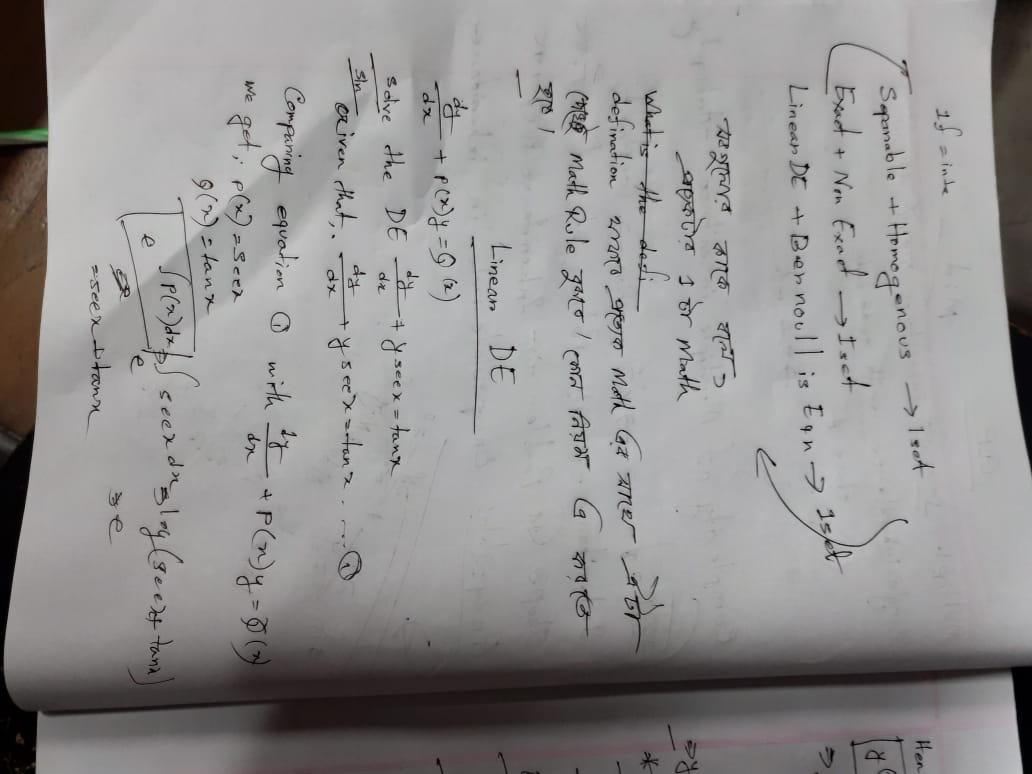 If = inte
Separable + Homogenous → 1 set
Exact + Non Exact → 1 set
Linear DE + Bernoull is Eqn → 1 set
কাকে বলে,
1 টা Math
What is the defi
defination থাকবে প্রত্যেক Math এর সাথে এটা
Math Rule বুঝবে। কোন নিয়ম এ করতে
হবে।
Linear DE
dy/dx + P(x)y = Q(x)
Solve the DE dy/dx + y secx = tanx
Sln
Given that, dy/dx + y secx = tanx ..... ①
Comparing equation ① with dy/dx + P(x)y = Q(x)
we get, P(x) = secx
Q(x) = tanx
e^∫P(x)dx = e^∫secx dx = e^log(secx + tanx)
= secx + tanx
Hen
y(
⇒
⇒y
*